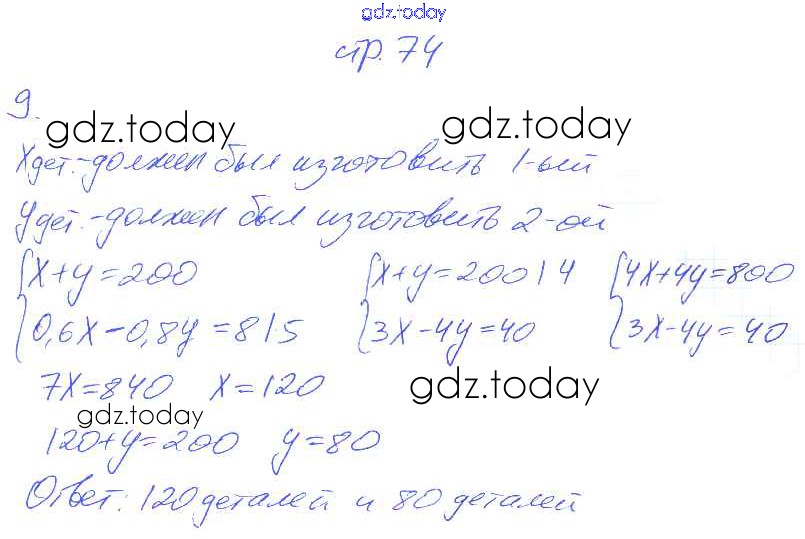 gdz.today
стр. 74
9.
gdz.today gdz.today
X дет. - должен был изготовить 1-ый
У дет. - должен был изготовить 2-ой
{x+y=200 {x+y=200 | 4 {4x+4y=800
{0,6x-0,8y=8 | 5 {3x-4y=40 {3x-4y=40
7x=840 x=120 gdz.today
gdz.today
120+y=200 y=80
Ответ: 120 деталей и 80 деталей